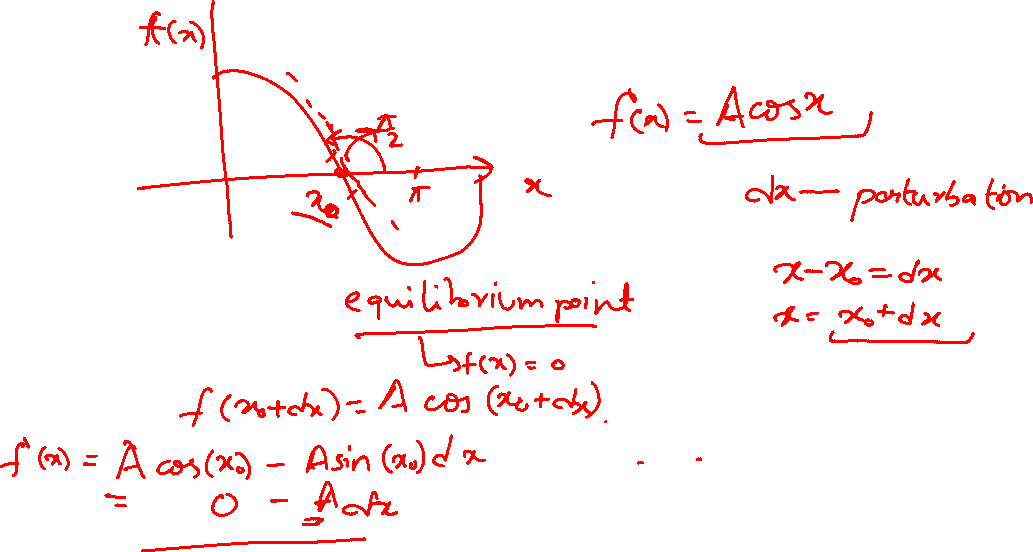 f(x)
π/2
f(x) = A cos x
x
π
x₀
dx — perturbation
x - x₀ = dx
x = x₀ + dx
equilibrium point
↳ f(x) = 0
f(x₀+dx) = A cos (x₀+dx)
f(x) = A cos(x₀) - A sin(x₀) dx
= 0 - A dx